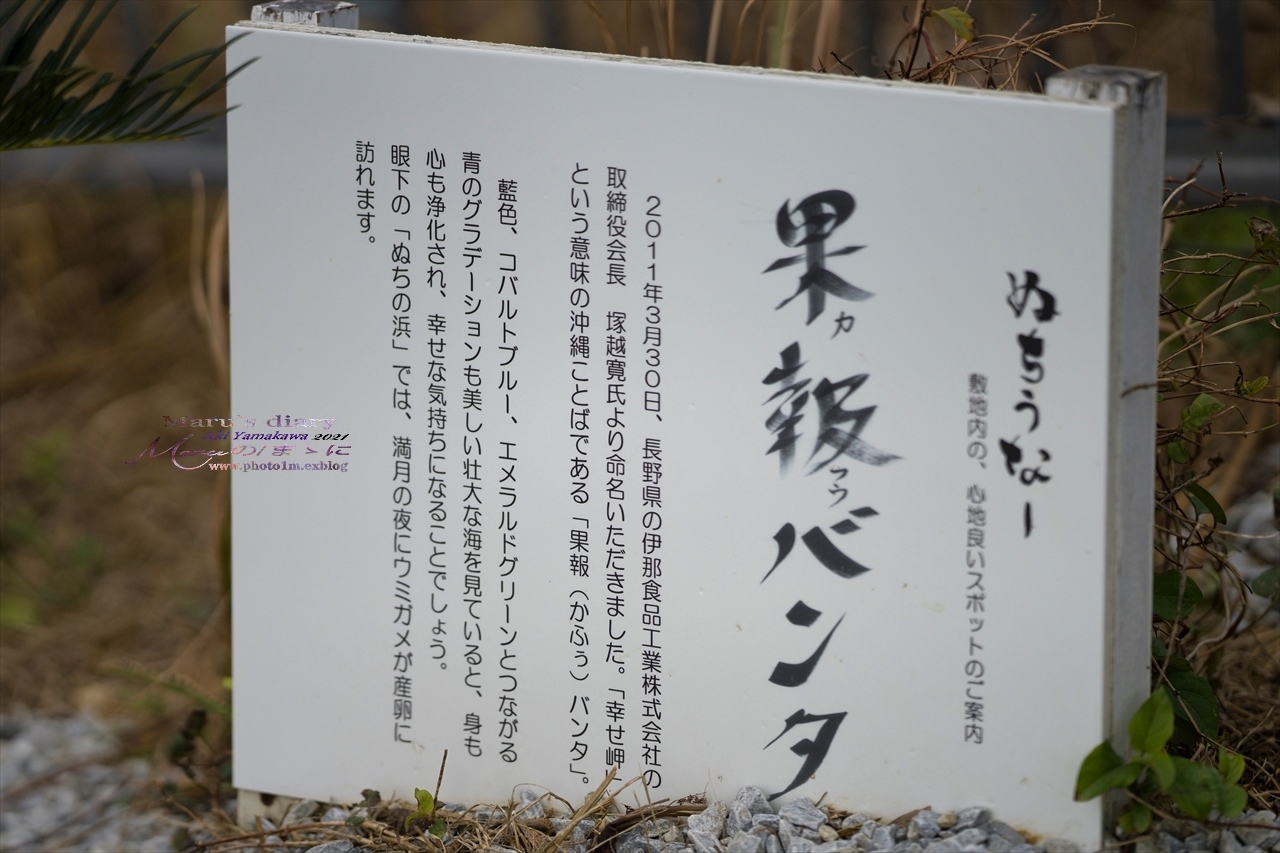 ぬちうなー
敷地内の、心地良いスポットのご案内
果報バンタ
カフゥ
２０１１年３月３０日、長野県の伊那食品工業株式会社の
取締役会長　塚越寛氏より命名いただきました。「幸せ岬」
という意味の沖縄ことばである「果報（かふぅ）バンタ」。
藍色、コバルトブルー、エメラルドグリーンとつながる
青のグラデーションも美しい壮大な海を見ていると、身も
心も浄化され、幸せな気持ちになることでしょう。
眼下の「ぬちの浜」では、満月の夜にウミガメが産卵に
訪れます。
Maru's diary
Aki Yamakawa 2021
Maruのはまゝに
www.photo1m.exblog